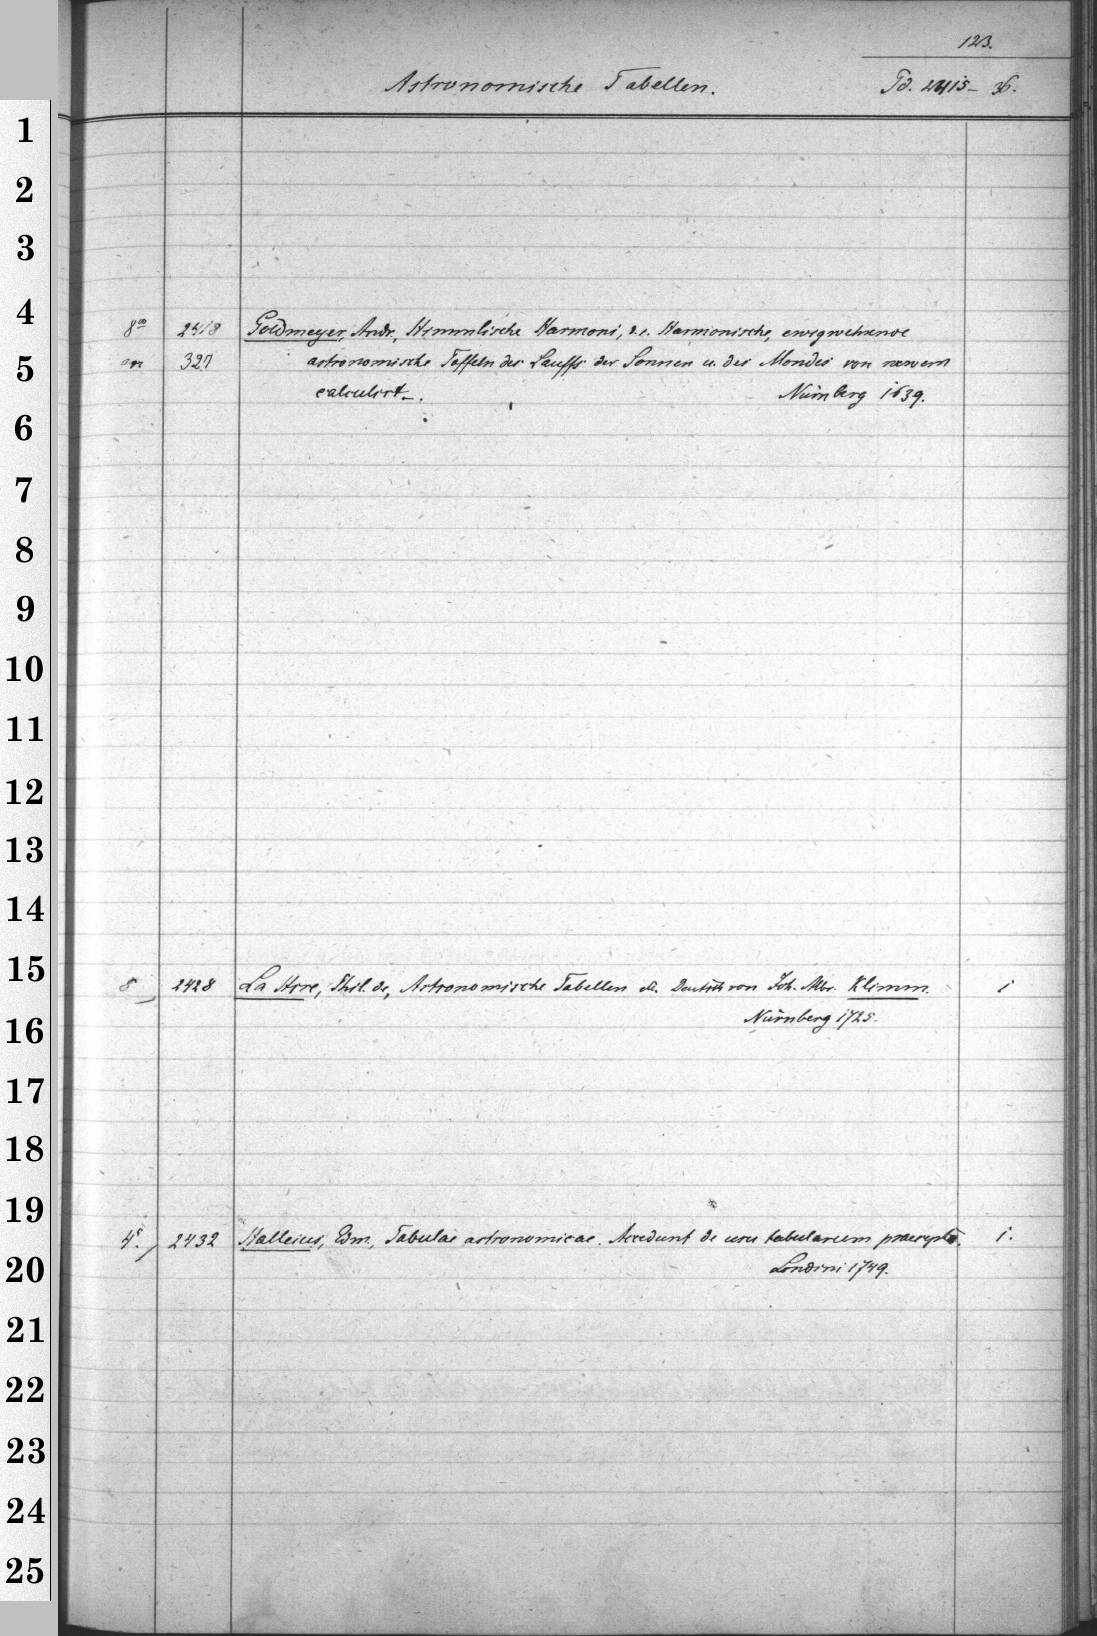 123.
Astronomische Tabellen. Td. 2415-36.
1
2
3
4
8° 2418 Goldmeyer, Andr., Himmlische Harmoni, d. i. Harmonische, ewigwehrende
5
an 327 astronomische Taffeln des Lauffs der Sonnen u. des Mondes von newem
calculirt_. Nürnberg 1639.
6
7
8
9
10
11
12
13
14
15
8 2428 La Hire, Phil. de, Astronomische Tabellen etc. Deutsch von Joh. Albr. Klimm. 1
Nürnberg 1725.
16
17
18
19
4°. 2432 Halleius, Edm., Tabulae astronomicae. Accedunt de usu tabularum praecepta. 1.
20
Londini 1749.
21
22
23
24
25